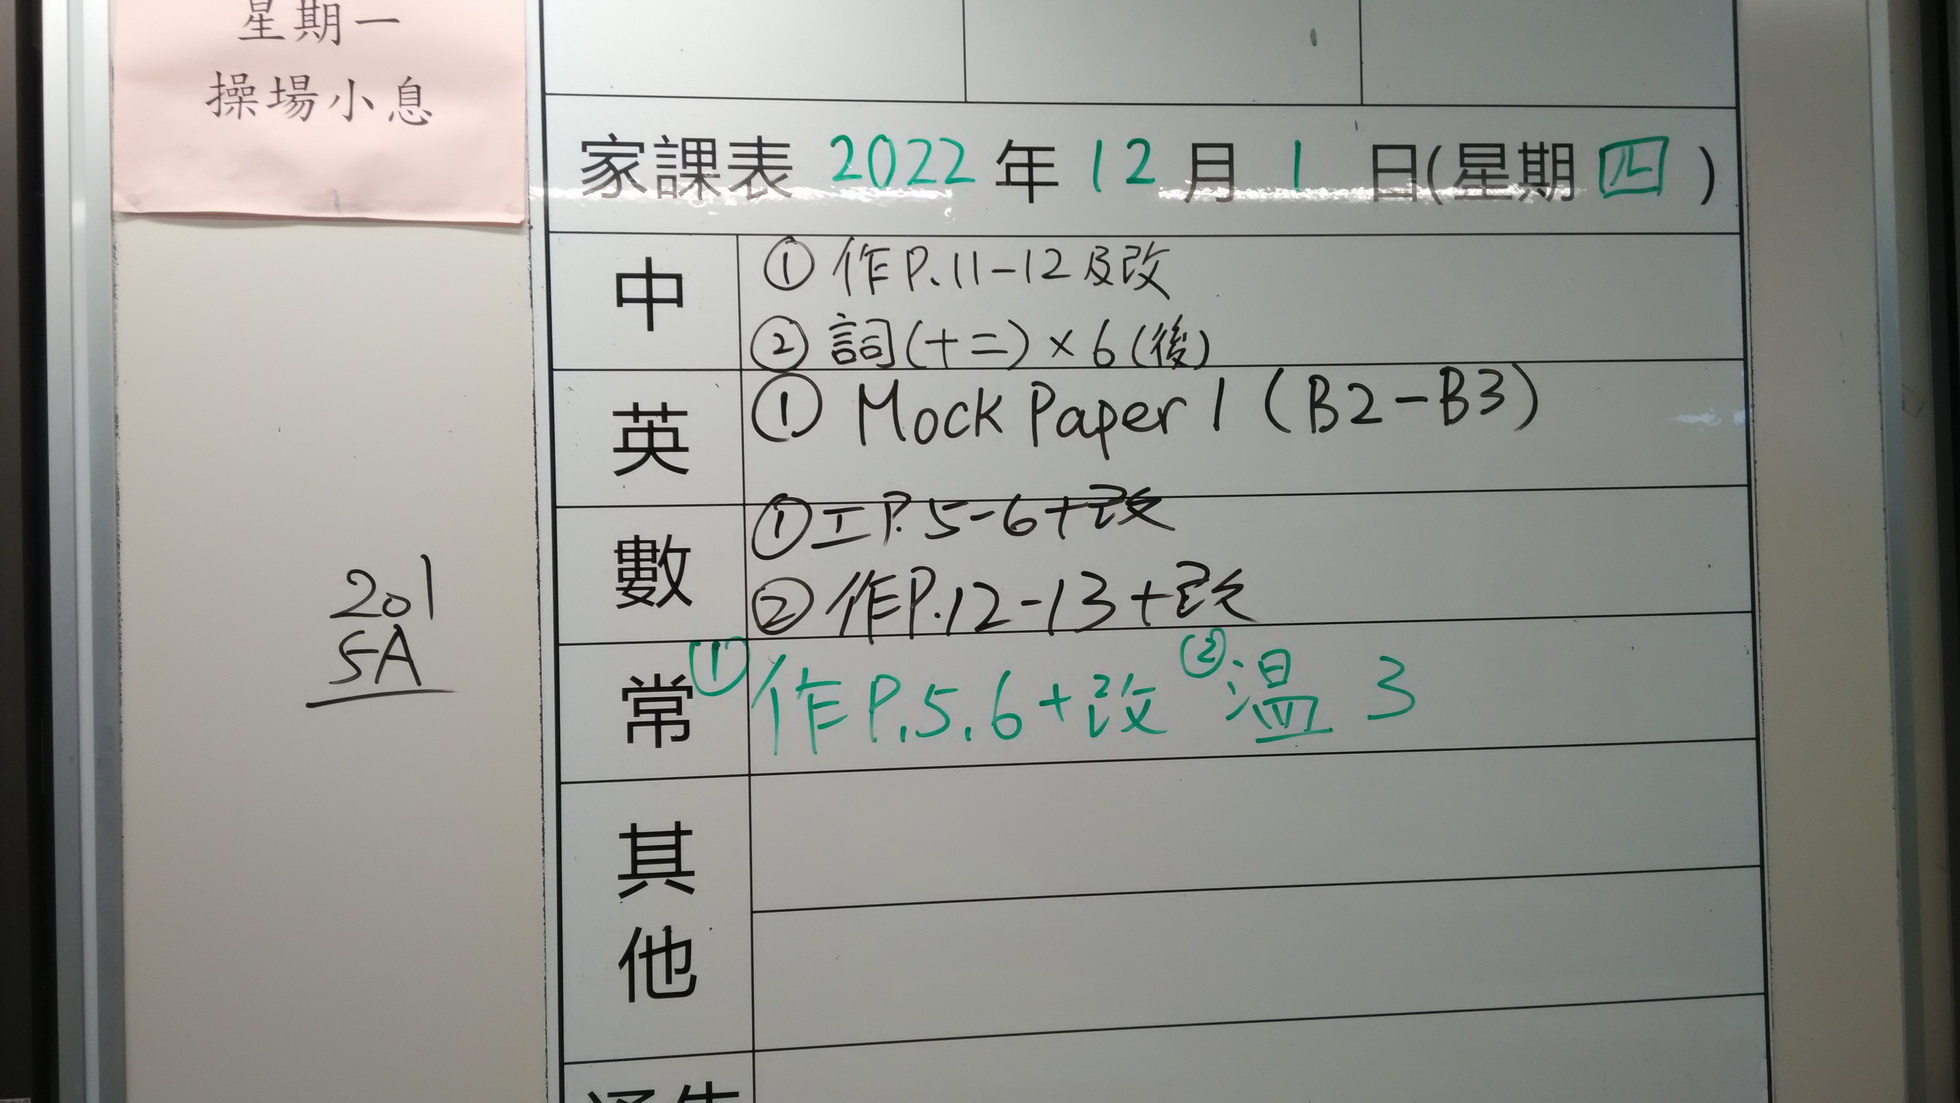 星期一
操場小息
家課表 2022 年 12 月 1 日(星期四)
中
① 作P.11-12及改
② 詞(十二)×6(後)
英
① Mock Paper 1 (B2-B3)
數
① 工P.5-6+改
② 作P.12-13+改
常
① 作P.5.6+改 ② 温 3
其他
通告
201
5A